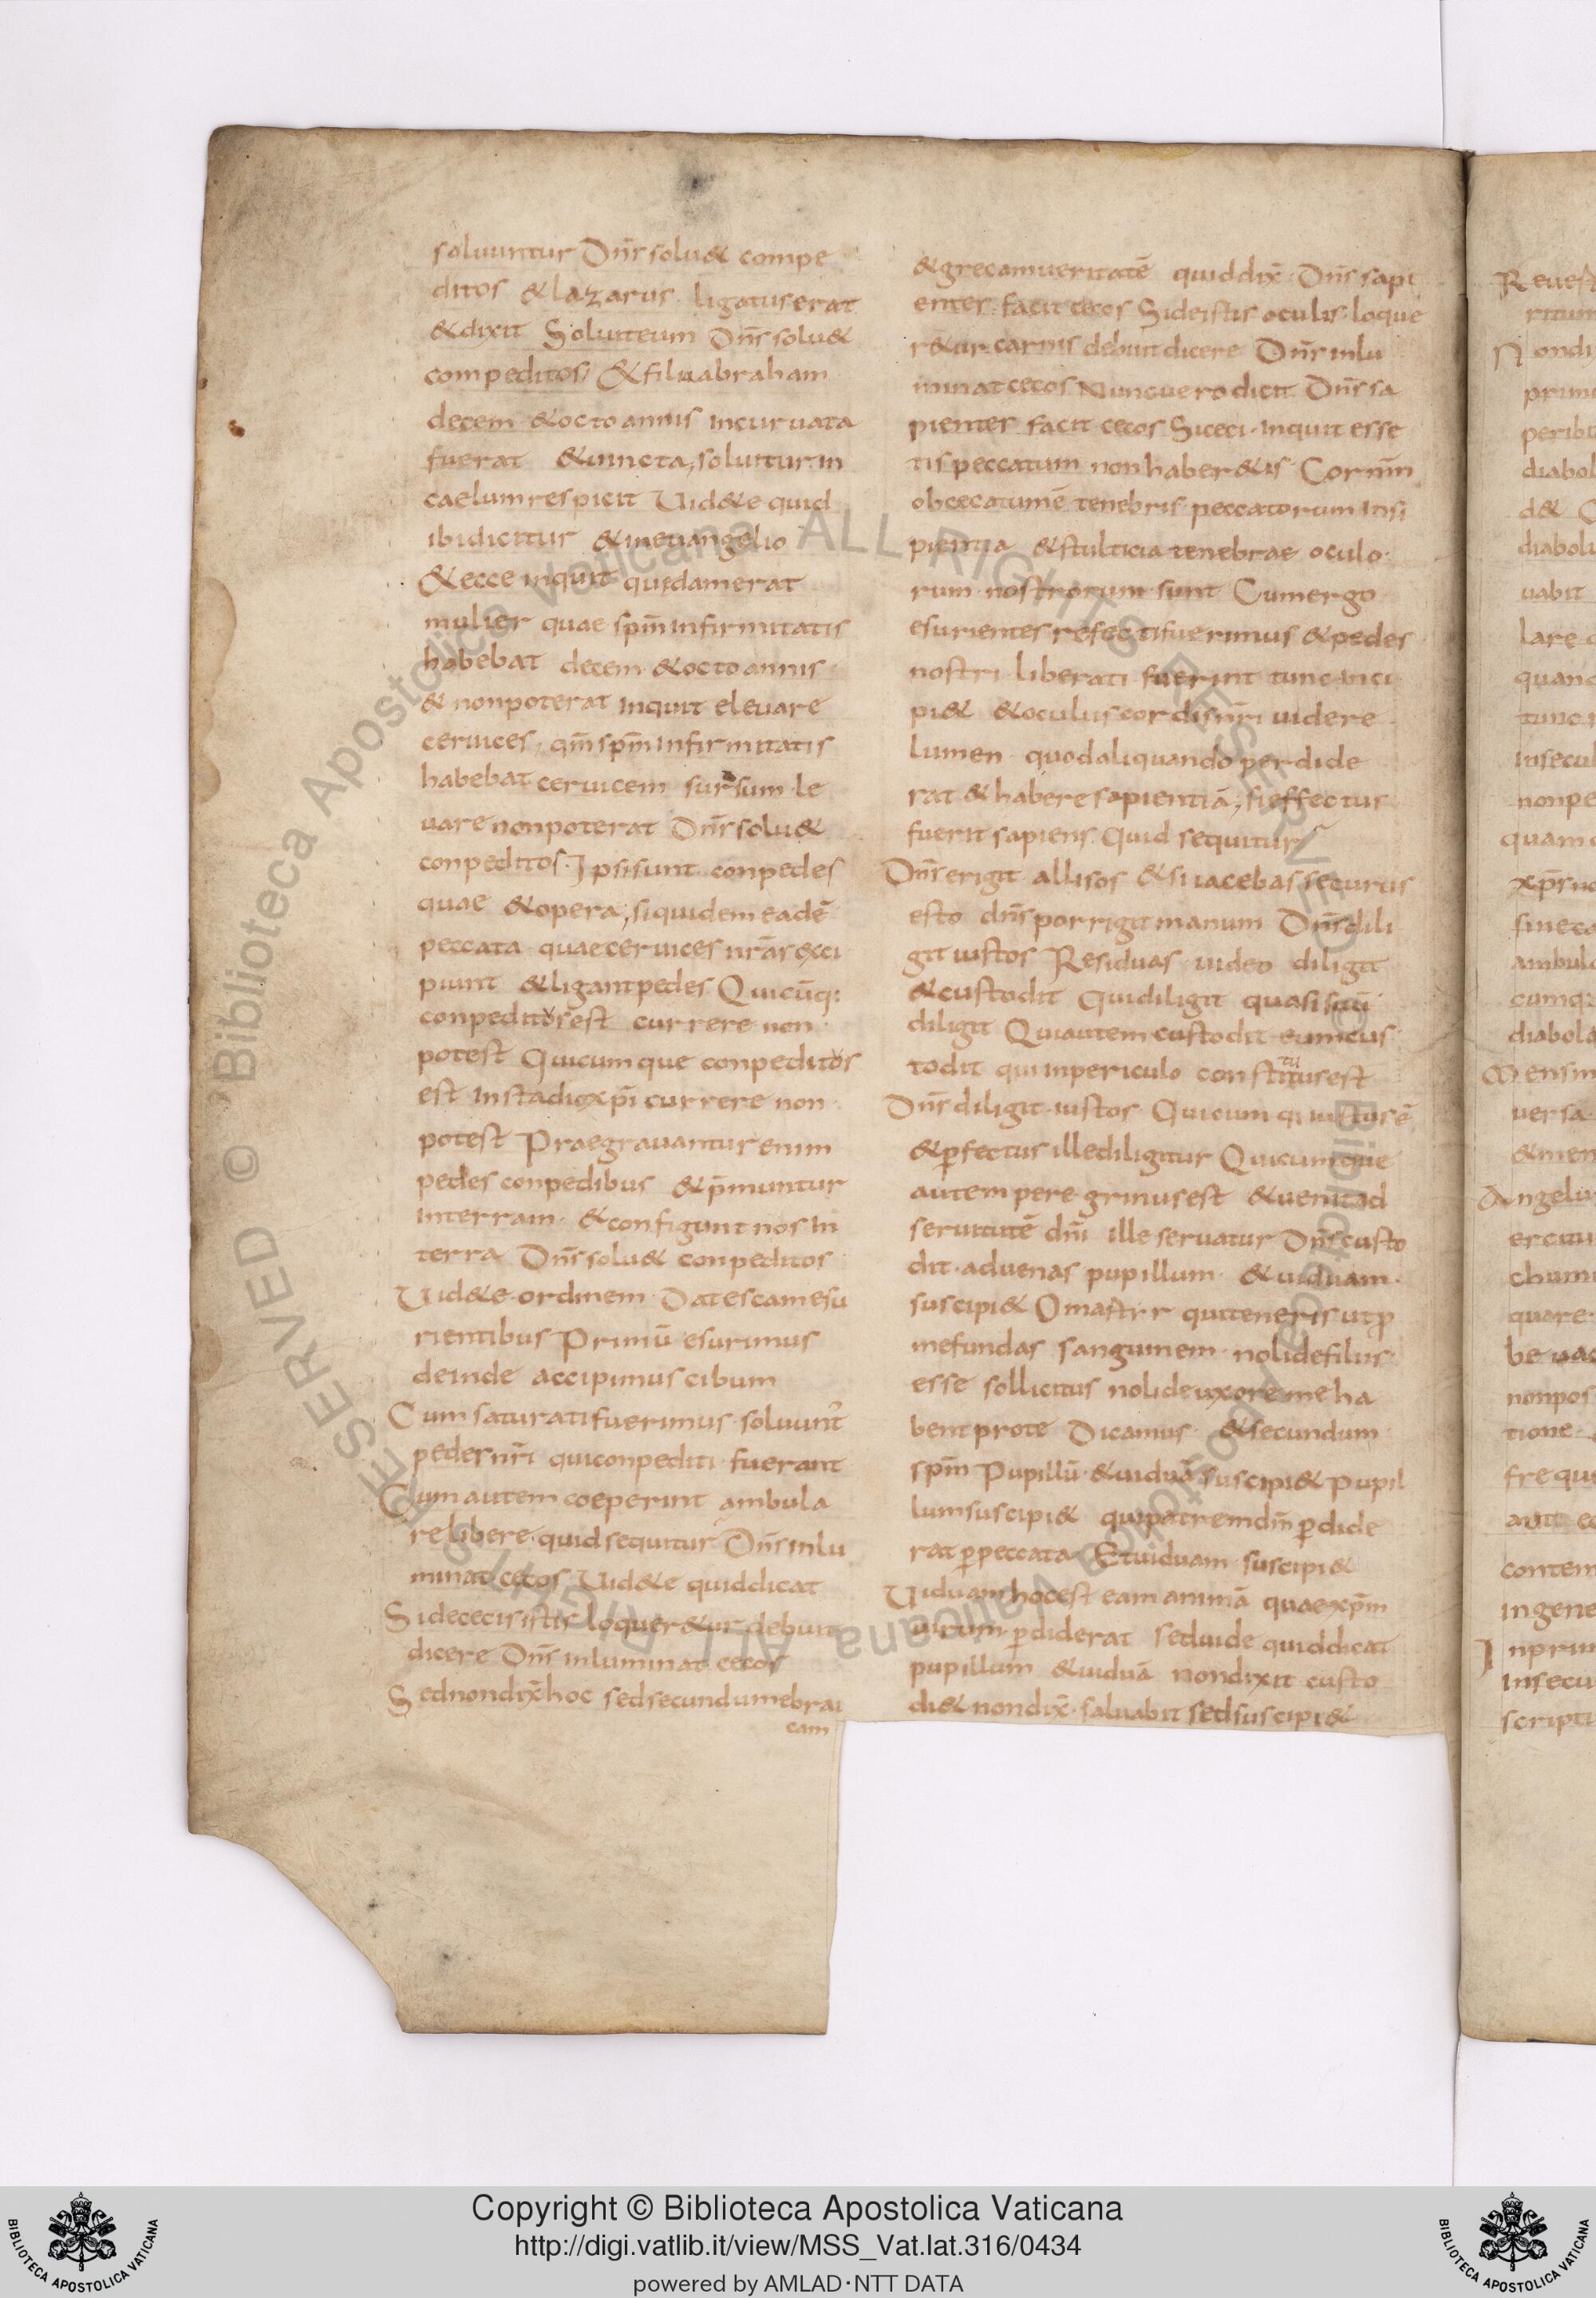 soluuntur Dn̄s solu& compe
ditos & lazarus ligatus erat
& dixit Soluite eum Dn̄s solu&
compeditos & filia abraham
decem & octo annis incuruata
fuerat & uincta, soluitur in
caelum respicit Uid&e quid
ibi dicitur & in euangelio
& ecce inquit quędam erat
mulier quae sp̄m infirmitatis
habebat decem & octo annis
& non poterat inquit eleuare
ceruices, qm̄ sp̄m infirmitatis
habebat ceruicem sursum le
uare non poterat Dn̄s solu&
conpeditos. Ipsi sunt conpedes
quae & opera, siquidem eadē
peccata quae ceruices nr̄as exci
piunt & ligant pedes Quicūq:
conpeditus est currere non
potest Quicumque conpeditus
est in stadio xp̄i currere non
potest Praegrauantur enim
pedes conpedibus & p̄muntur
in terram & configunt nos in
terra Dn̄s solu& conpeditos
Uid&e ordinem Dat escam esu
rientibus Primū esurimus
deinde accipimus cibum
Cum saturati fuerimus soluunt̄
pedes nr̄i qui conpediti fuerant
Cum autem coeperint ambula
re libere quid sequitur Dn̄s inlu
minat cecos Uid&e quid dicat
Si de cecis istis loquer&ur debuit
dicere Dn̄s inluminat cecos
Sed non dix̄ hoc sed secundum ebrai
cam
& grecam ueritatē quid dix̄ Dn̄s sapi
entes facit cecos Si de istis oculis loque
r&ur carnis debuit dicere Dn̄s inlu
minat cecos Nunc uero dicit Dn̄s sa
pientes facit cecos Si ceci inquit esse
tis peccatum non haber&is Cor nr̄m
obcecatum ē tenebris peccatorum Insi
pientia & stulticia tenebrae oculo
rum nostrorum sunt Cum ergo
esurientes refecti fuerimus & pedes
nostri liberati fuerint tunc inci
pi& & oculus cordis nr̄i uidere
lumen quod aliquando perdide
rat & habere sapientiā, si effectus
fuerit sapiens Quid sequitur
Dn̄s erigit allisos & si iacebas securus
esto dn̄s porrigit manum Dn̄s dili
git iustos Residuas uideo diligit
& custodit Qui diligit quasi suū
diligit Qui autem custodit eum cus
todit qui in periculo constitutus est
Dn̄s diligit iustos Quicumq: iustus ē
& ꝑfectus ille diligitur Quicumque
autem peregrinus est & uenit ad
seruitutē dn̄i ille seruatur Dn̄s custo
dit aduenas pupillum & uiduam
suscipi& O mastrr qui teneris ut ꝓ
me fundas sanguinem noli de filiis
esse sollicitus noli de uxore me ha
bent pro te Dicamus & secundum
sp̄m Pupillū & uiduā suscipi& Pupil
lum suscipi& qui patrem dn̄m ꝑdide
rat ꝑ peccata Et uiduam suscipi&
Uiduam hoc est eam animā quae xp̄m
uirum ꝑdiderat sed uide quid dicat
pupillum & uiduā non dixit custo
di& non dix̄ saluabit sed suscipi&
Copyright © Biblioteca Apostolica Vaticana
http://digi.vatlib.it/view/MSS_Vat.lat.316/0434
powered by AMLAD·NTT DATA
BIBLIOTECA APOSTOLICA VATICANA
BIBLIOTECA APOSTOLICA VATICANA